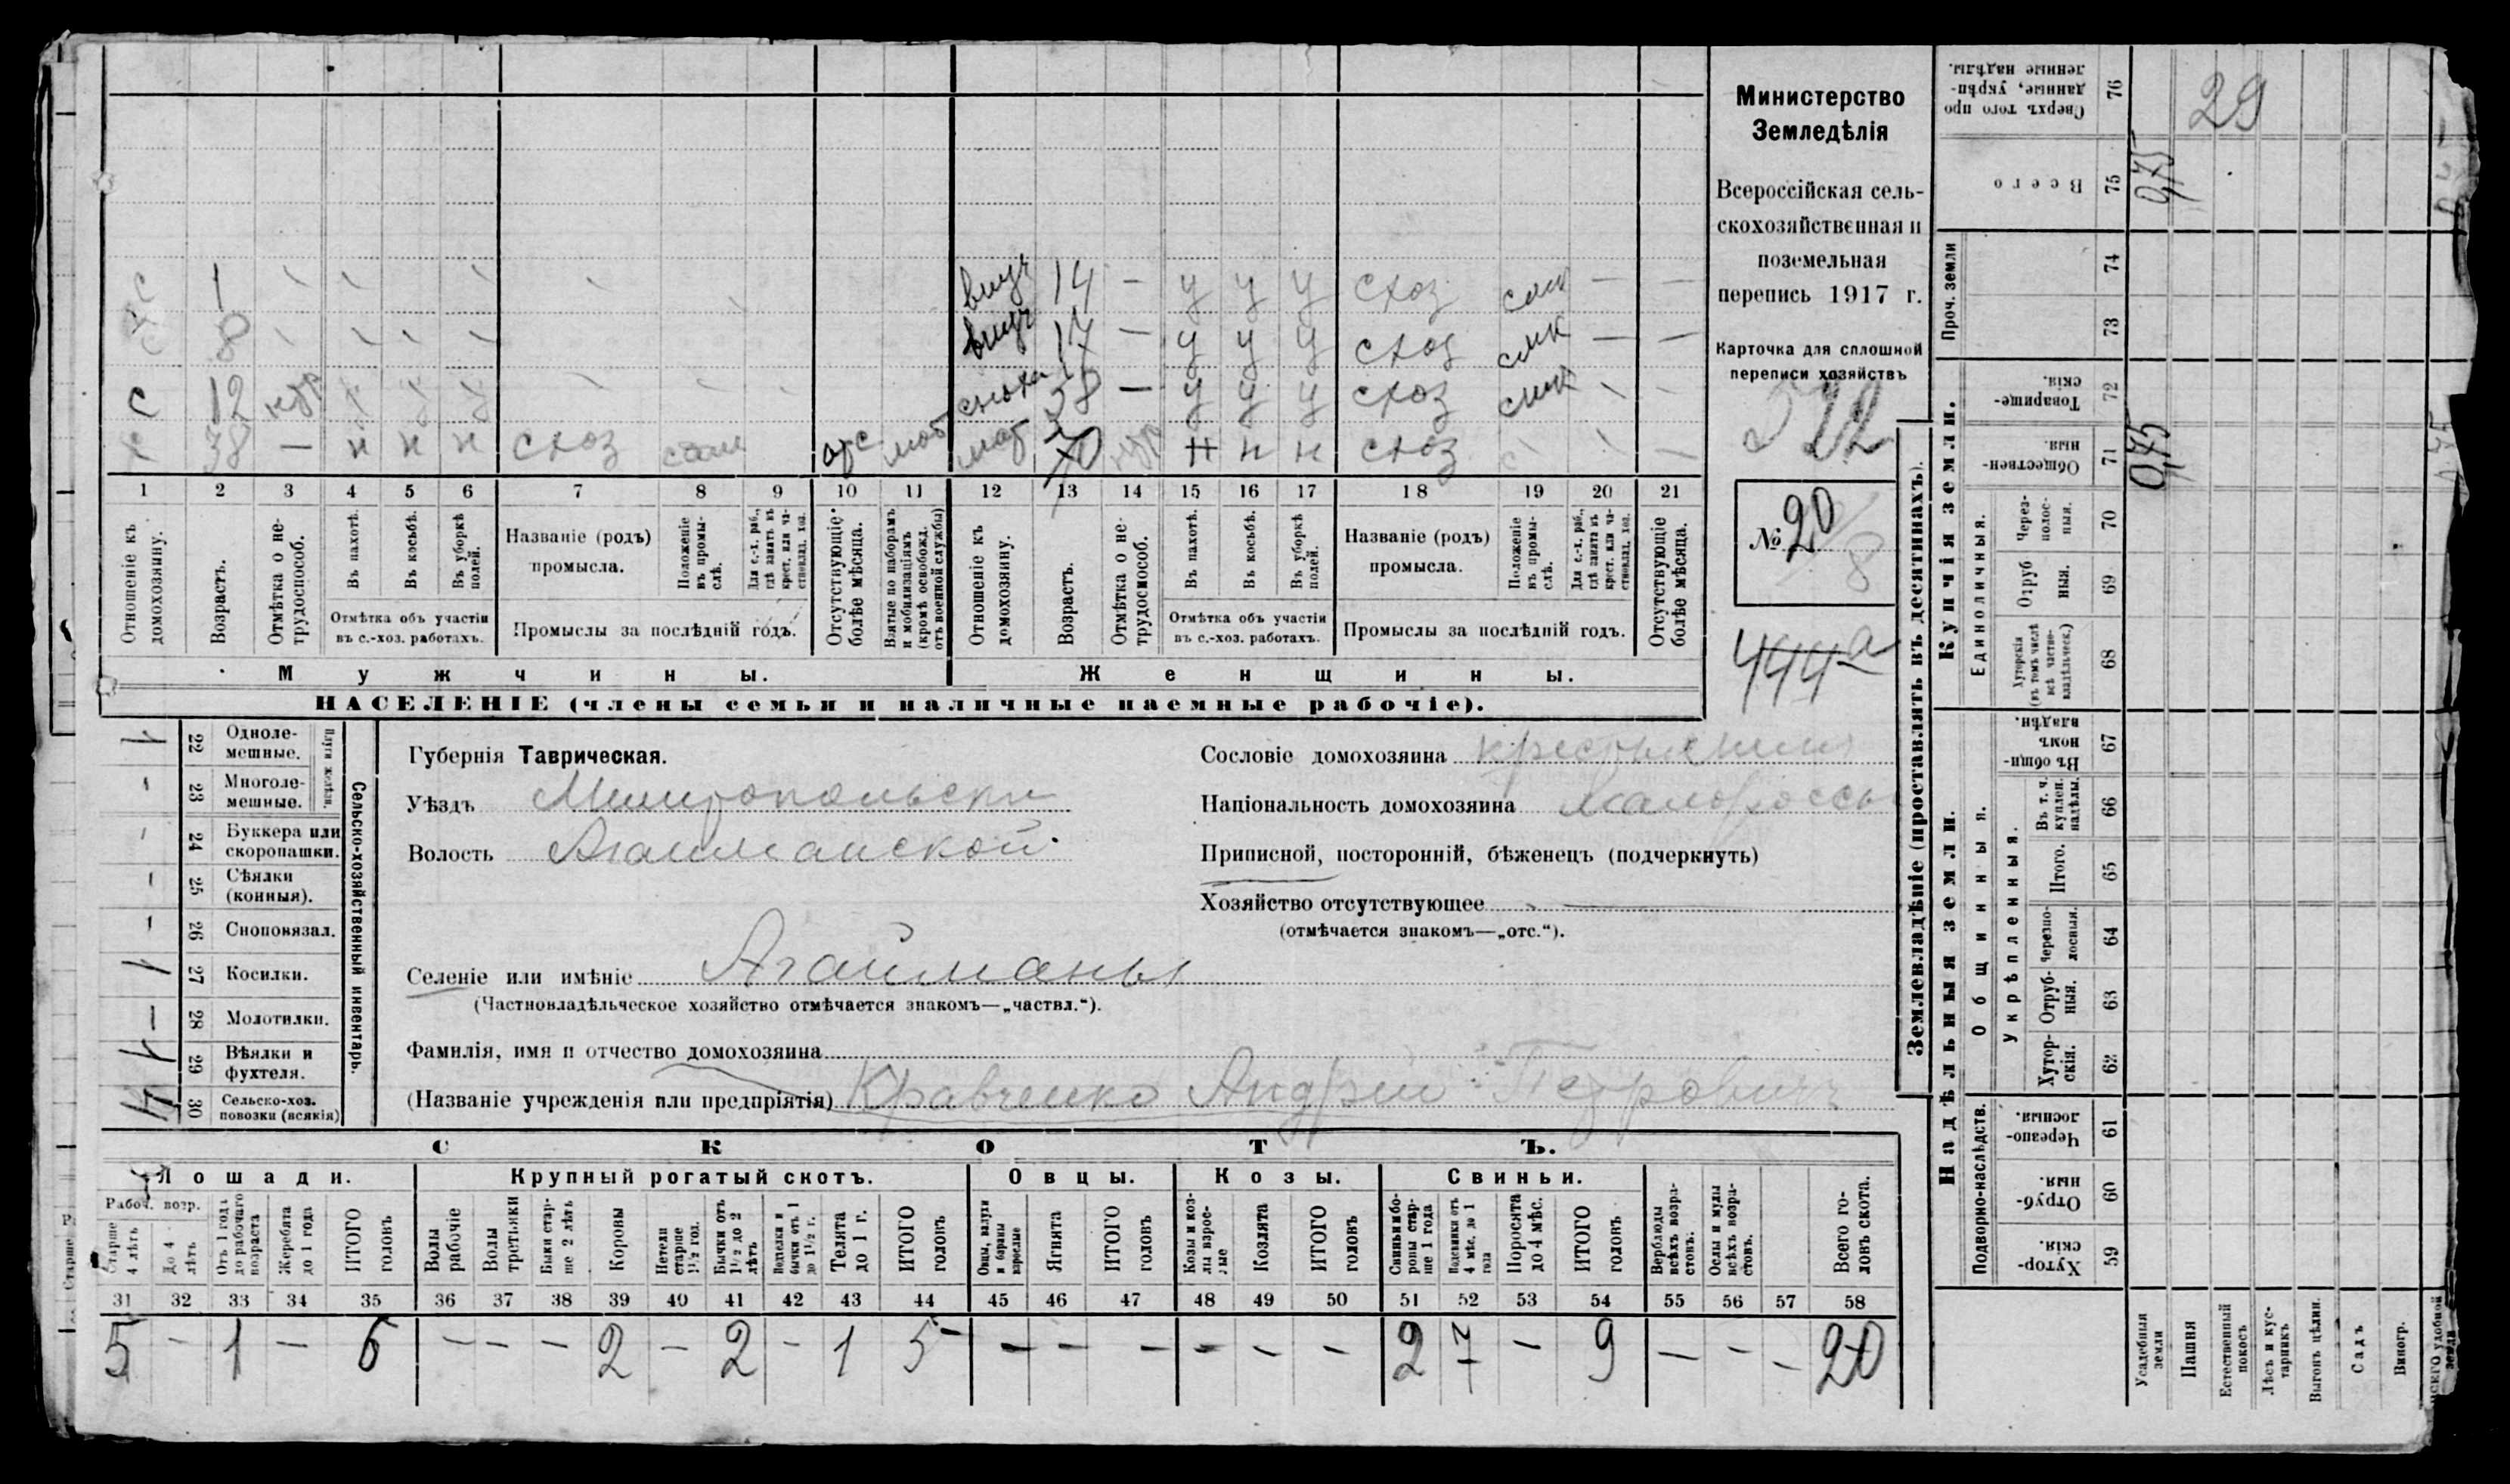 Министерство
Земледѣлія
Всероссійская сель-
скохозяйственная и
поземельная
перепись 1917 г.
Карточка для сплошной
переписи хозяйствъ
№ 20
444а
с 1
с 8
с 12
38 — н н н схоз сам отс моб
внуч 14 — у у у схоз — —
внуч 17 — у у у схоз — —
сноха 38 — у у у схоз
мат 70 н н н схоз —
1 2 3 4 5 6 7 8 9 10 11 12 13 14 15 16 17 18 19 20 21
Отношеніе къ домохозяину.
Возрастъ.
Отмѣтка о не-трудоспособ.
Въ пахотѣ.
Въ косьбѣ.
Въ уборкѣ полей.
Отмѣтка объ участіи
въ с.-хоз. работахъ.
Названіе (родъ)
промысла.
Положеніе въ промы-слѣ.
Для с.-х. раб., гдѣ занятъ въ крест. или ча-стновлад. хоз.
Промыслы за послѣдній годъ.
Отсутствующіе болѣе мѣсяца.
Взятые по наборамъ и мобилизаціямъ (кромѣ освобожд. отъ военной службы)
Отношеніе къ домохозяину.
Возрастъ.
Отмѣтка о не-трудоспособ.
Въ пахотѣ.
Въ косьбѣ.
Въ уборкѣ полей.
Отмѣтка объ участіи
въ с.-хоз. работахъ.
Названіе (родъ)
промысла.
Положеніе въ промы-слѣ.
Для с.-х. раб., гдѣ занята въ крест. или ча-стновлад. хоз.
Промыслы за послѣдній годъ.
Отсутствующіе болѣе мѣсяца.
Мужчины. Женщины.
НАСЕЛЕНІЕ (члены семьи и наличные наемные рабочіе).
Сельско-хозяйственный инвентарь.
Плуги желѣзн.
1 22 Одноле-мешные.
- 23 Многоле-мешные.
- 24 Буккера или скоропашки.
- 25 Сѣялки (конныя).
- 26 Сноповязал.
1 27 Косилки.
- 28 Молотилки.
1 29 Вѣялки и фухтеля.
30 Сельско-хоз. повозки (всякія)
Губернія Таврическая.
Уѣздъ Мелитопольскій
Волость Агайманской
Селеніе или имѣніе Агайманы
(Частновладѣльческое хозяйство отмѣчается знакомъ—„частвл.“).
Фамилія, имя и отчество домохозяина
(Названіе учрежденія или предпріятія) Кравченко Андрей Петровичъ
Сословіе домохозяина крестьянинъ
Національность домохозяина Малороссъ
Приписной, посторонній, бѣженецъ (подчеркнуть)
Хозяйство отсутствующее —
(отмѣчается знакомъ—„отс.“).
СКОТЪ.
Лошади. Крупный рогатый скотъ. Овцы. Козы. Свиньи.
Рабоч. возр.
Старше 4 лѣтъ
До 4 лѣтъ
Отъ 1 года до рабочаго возраста
Жеребята до 1 года
ИТОГО головъ
Волы рабочіе
Волы третьяки
Быки стар-ше 2 лѣтъ
Коровы
Нетели старше 1½ год.
Бычки отъ 1½ до 2 лѣтъ
Телята до 1 г.
ИТОГО головъ
Ягнята
ИТОГО головъ
Козы и коз-лы взрос-лые
Козлята
ИТОГО головъ
Свиньи и бо-ровы стар-ше 1 года
Подсвинки отъ 4 мѣс. до 1 года
Поросята до 4 мѣс.
ИТОГО головъ
Верблюды всѣхъ возра-стовъ.
Ослы и мулы всѣхъ возра-стовъ.
Всего го-ловъ скота.
31 32 33 34 35 36 37 38 39 40 41 42 43 44 45 46 47 48 49 50 51 52 53 54 55 56 57 58
5 - 1 - 6 - - - 2 - 2 - 1 5 - - - - - - 2 7 - 9 - - - 20
Землевладѣніе (проставлять въ десятинахъ).
Купчія земли.
Надѣльныя земли.
Сверхъ того про данные, укрѣп-ленные надѣлы. 76 29
Всего 75 0,75
Проч. земли 74
73
Товарище-скія. 72
Обществен-ныя. 71 0,75
Единоличныя.
Через-полос-ныя. 70
Отруб ныя. 69
Хуторскія (въ томъ числѣ всѣ частно-владѣльческ.) 68
Въ общин-номъ владѣн. 67
Общинныя.
Укрѣпленныя.
Въ т. ч. куплен. надѣлы. 66
Итого. 65
Черезпо-лосныя. 64
Отруб-ныя. 63
Хутор-скія. 62
Подворно-наслѣдств.
Черезпо-лосныя. 61
Отруб-ныя. 60
Хутор-скія. 59
Усадебныя земли
Пашня
Естественный покосъ
Лѣсъ и кус-тарникъ
Выгонъ цѣлин.
Садъ
Виногр.